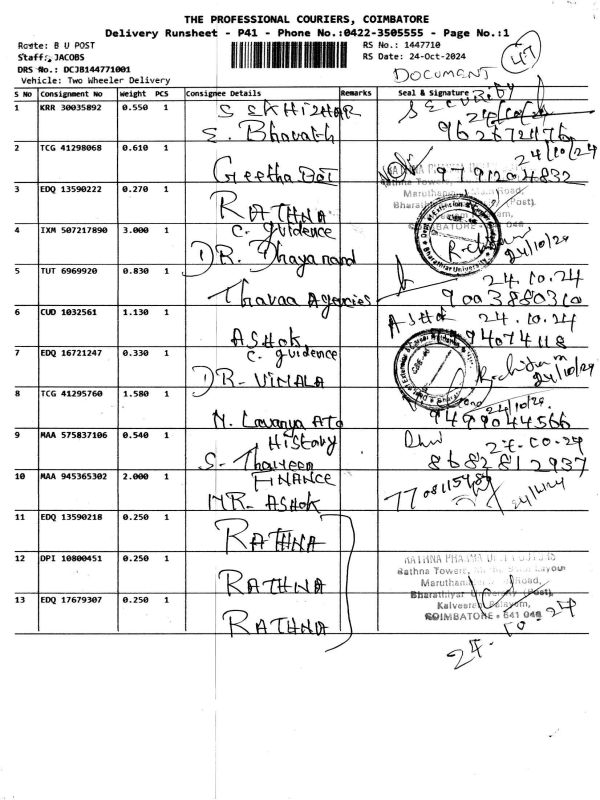 THE PROFESSIONAL COURIERS, COIMBATORE
Delivery Runsheet - P41 - Phone No.:0422-3505555 - Page No.:1
Route: B U POST RS No.: 1447710
Staff: JACOBS RS Date: 24-Oct-2024
DRS No.: DCJB144771001
Vehicle: Two Wheeler Delivery
DOCUMENT 47
S No Consignment No Weight PCS Consignee Details Remarks Seal & Signature
1 KRR 30035892 0.550 1 SECURITY
24/10/24
E. Bharath
2 TCG 41298068 0.610 1 24/10/24
Geetha 9791204832
3 EDQ 13590222 0.270 1
RATHNA
4 IXM 507217890 3.000 1 C. guidence
DR. Dhayanand 24/10/24
5 TUT 6969920 0.830 1 24.10.24
Thavaa Agencies 9003880310
6 CUD 1032561 1.130 1 ASHOK 24.10.24
ASHOK
7 EDQ 16721247 0.330 1 C. guidence
DR- VIMALA 24/10/24
8 TCG 41295760 1.580 1 24/10/24
N. Lavanya 9499044566
9 MAA 575837106 0.540 1 HIStory
S- 8682812937
10 MAA 945365302 2.000 1 FINANCE
MR- ASHOK
11 EDQ 13590218 0.250 1
RATHNA
12 DPI 10800451 0.250 1
RATHNA
13 EDQ 17679307 0.250 1
RATHNA
Rathna Towers,
Bharathiyar University (Post),
COIMBATORE - 641 046
24.10.24